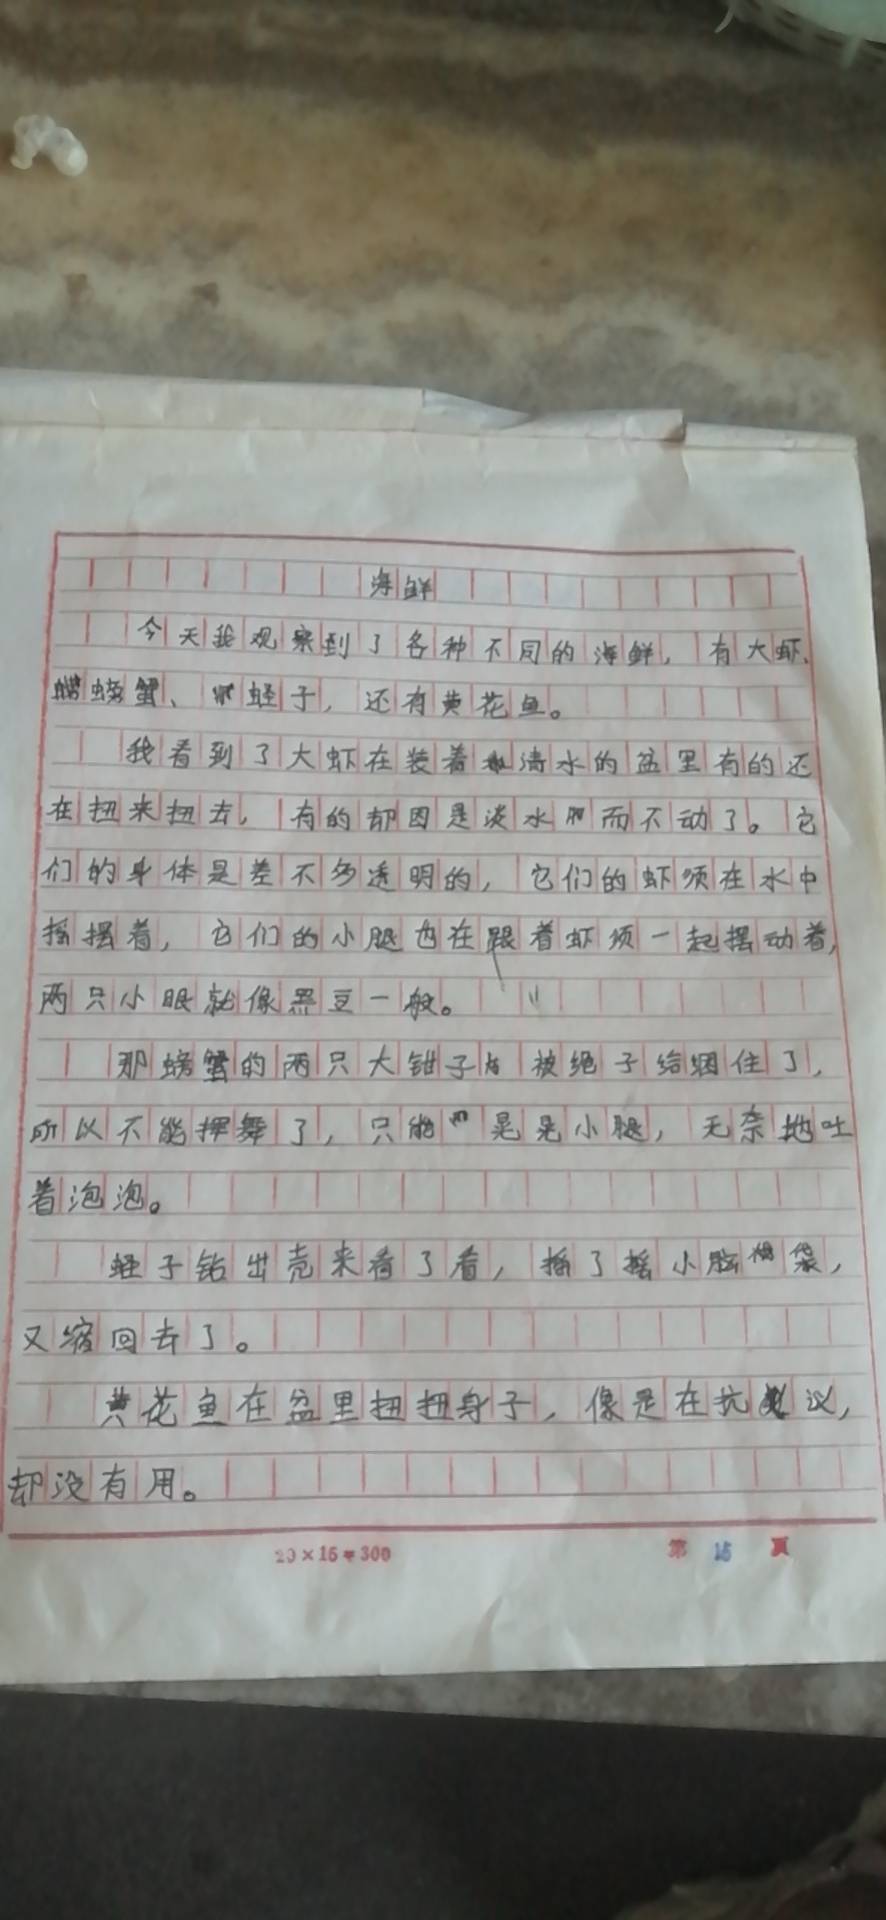 海鲜
今天我观察到了各种不同的海鲜，有大虾、
螃蟹、蛏子，还有黄花鱼。
我看到了大虾在装着清水的盆里有的还
在扭来扭去，有的却因是淡水而不动了。它
们的身体是差不多透明的，它们的虾须在水中
摇摆着，它们的小腿也在跟着虾须一起摆动着，
两只小眼就像黑豆一般。
那螃蟹的两只大钳子被绳子给捆住了，
所以不能挥舞了，只能晃晃小腿，无奈地吐
着泡泡。
蛏子钻出壳来看了看，摇了摇小脑袋，
又缩回去了。
黄花鱼在盆里扭扭身子，像是在抗议，
却没有用。
20×15=300
第 15 页